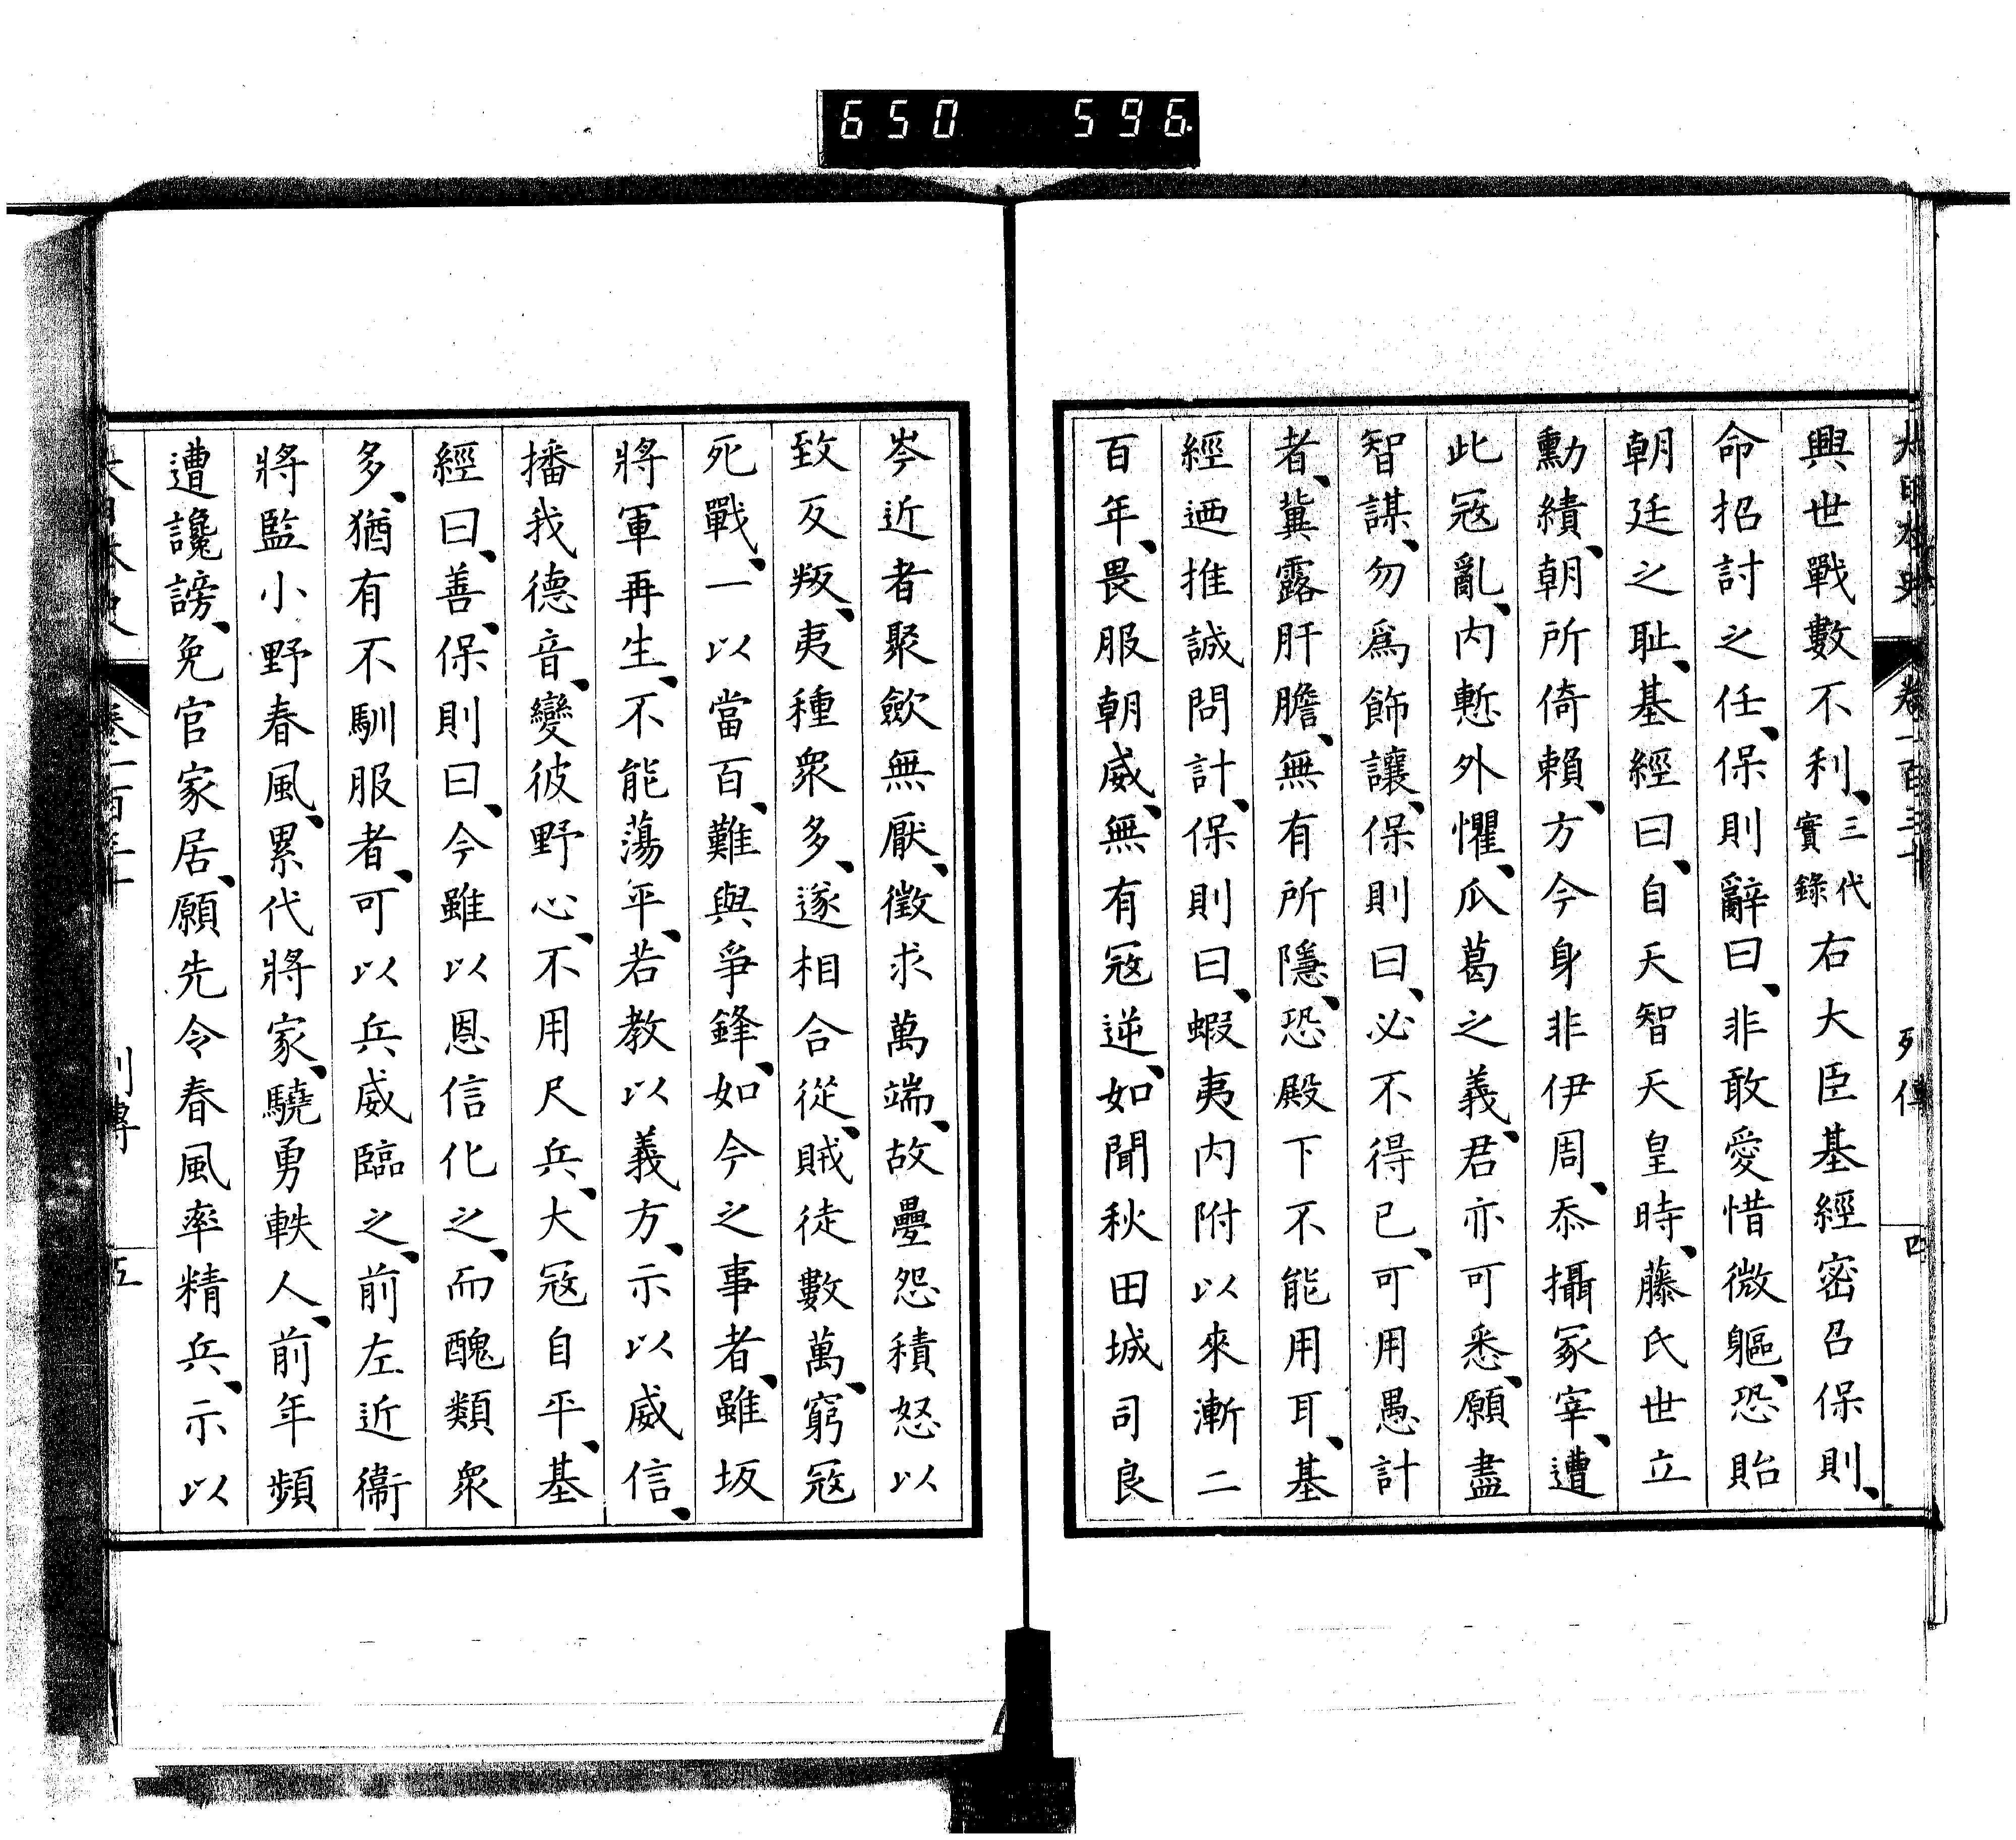 650 596.
大日本史 卷一百三十 列傳 四
興世戰數不利、三代實錄右大臣基經密召保則、
命招討之任、保則辭曰、非敢愛惜微軀、恐貽
朝廷之耻、基經曰、自天智天皇時、藤氏世立
勳績、朝所倚賴、方今身非伊周、忝攝冢宰、遭
此寇亂、内慙外懼、瓜葛之義、君亦可悉、願盡
智謀、勿爲飾讓、保則曰、必不得已、可用愚計
者、冀露肝膽、無有所隱、恐殿下不能用耳、基
經迺推誠問計、保則曰、蝦夷内附以來漸二
百年、畏服朝威、無有寇逆、如聞秋田城司良
岑近者聚歛無厭、徵求萬端、故疊怨積怒以
致反叛、夷種衆多、遂相合從、賊徒數萬、窮寇
死戰、一以當百、難與爭鋒、如今之事者、雖坂
將軍再生、不能蕩平、若教以義方、示以威信、
播我德音、變彼野心、不用尺兵、大寇自平、基
經曰、善、保則曰、今雖以恩信化之、而醜類衆
多、猶有不馴服者、可以兵威臨之、前左近衞
將監小野春風、累代將家、驍勇軼人、前年頻
遭讒謗、免官家居、願先令春風率精兵、示以
列傳 五